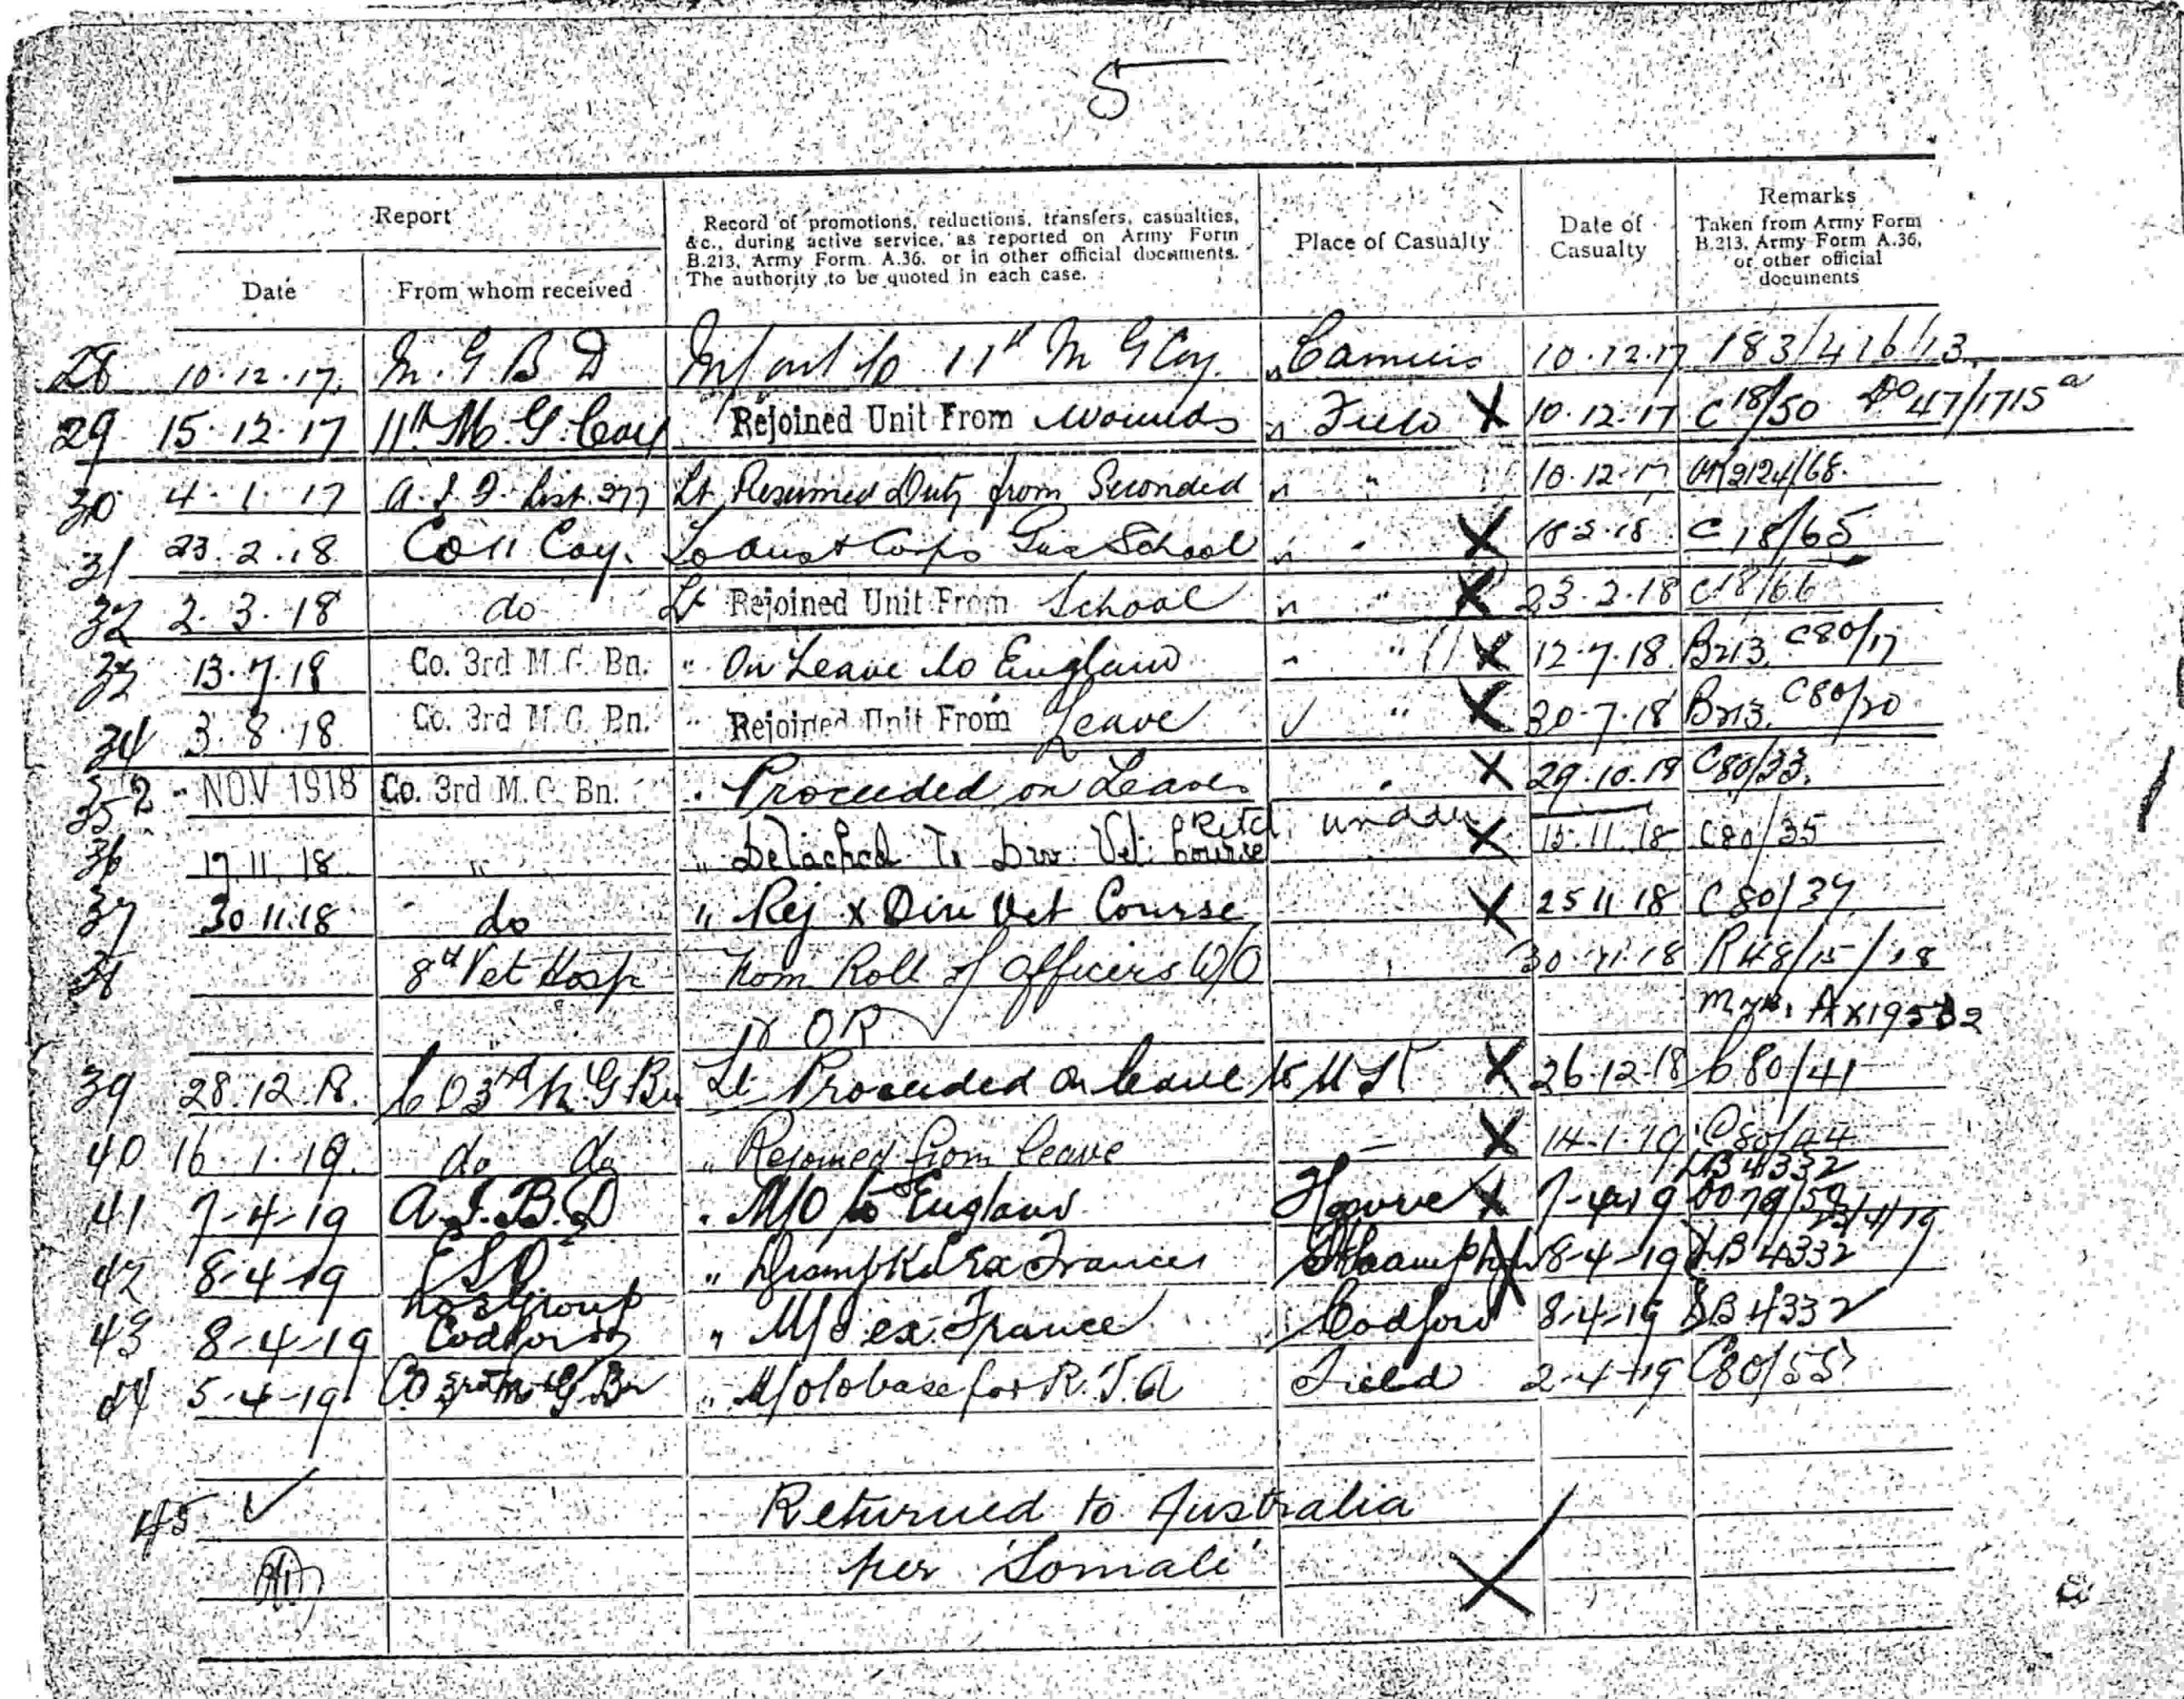 5
Report
Record of promotions, reductions, transfers, casualties,
&c., during active service, as reported on Army Form
B.213, Army Form A.36, or in other official documents.
The authority to be quoted in each case.
Place of Casualty
Date of
Casualty
Remarks
Taken from Army Form
B.213, Army Form A.36,
or other official
documents
Date
From whom received
28 10.12.17. M.G.B.D to 11th M G Coy. Camiers 10.12.17 183/416/13
29 15.12.17 11th M.G. Coy Rejoined Unit From Wounds " Field X 10.12.17 C18/50 DO 47/1715a
30 4.1.17 A.I.F. List 277 Lt Resumed Duty from Seconded " " 10.12.17 2124/68.
31 23.2.18 Co 11 Coy. To Aust Corps Gas School " " X 18.2.18 C18/65
32 2.3.18 do Lt Rejoined Unit From School " " X 23.2.18 C18/66
33 13.7.18 Co. 3rd M.G. Bn. " On Leave to England " " X 12.7.18 B213. C80/17
34 3.8.18 Co. 3rd M.G. Bn. " Rejoined Unit From Leave " X 30.7.18 B213. C80/20
35 2 - NOV 1918 Co. 3rd M.G. Bn. " Proceeded on Leave " X 29.10.18 C80/33.
36 17.11.18 " " Detached To Div. Vet. Course X 15.11.18 C80/35
37 30.11.18 do " Rej x Div Vet Course X 25 11 18 C80/37
38 8th Vet Hosp Nom Roll of Officers W/O 30.11.18 R48/15/18
& OR
39 28.12.18. CO 3rd M.G Bn Lt Proceeded on leave to U K X 26.12.18 C80/41
40 16.1.19. do do " Rejoined from leave — X 14.1.19 C80/44
DB 4332
41 7-4-19 A.I.B.D " M/O to England Havre X 7-4-19 DO 79/52
23/4/19
42 8-4-19 " Ex France Sthampton X 8-4-19 DB 4332
43 8-4-19 No 3 Group
Codford " M/I ex France Codford 8-4-19 DB 4332
44 5-4-19 CO 3rd M G Bn " M/O to base for R.T.A Field 2-4-19 C80/55
45 ✓ Returned to Australia
per 'Somali' X